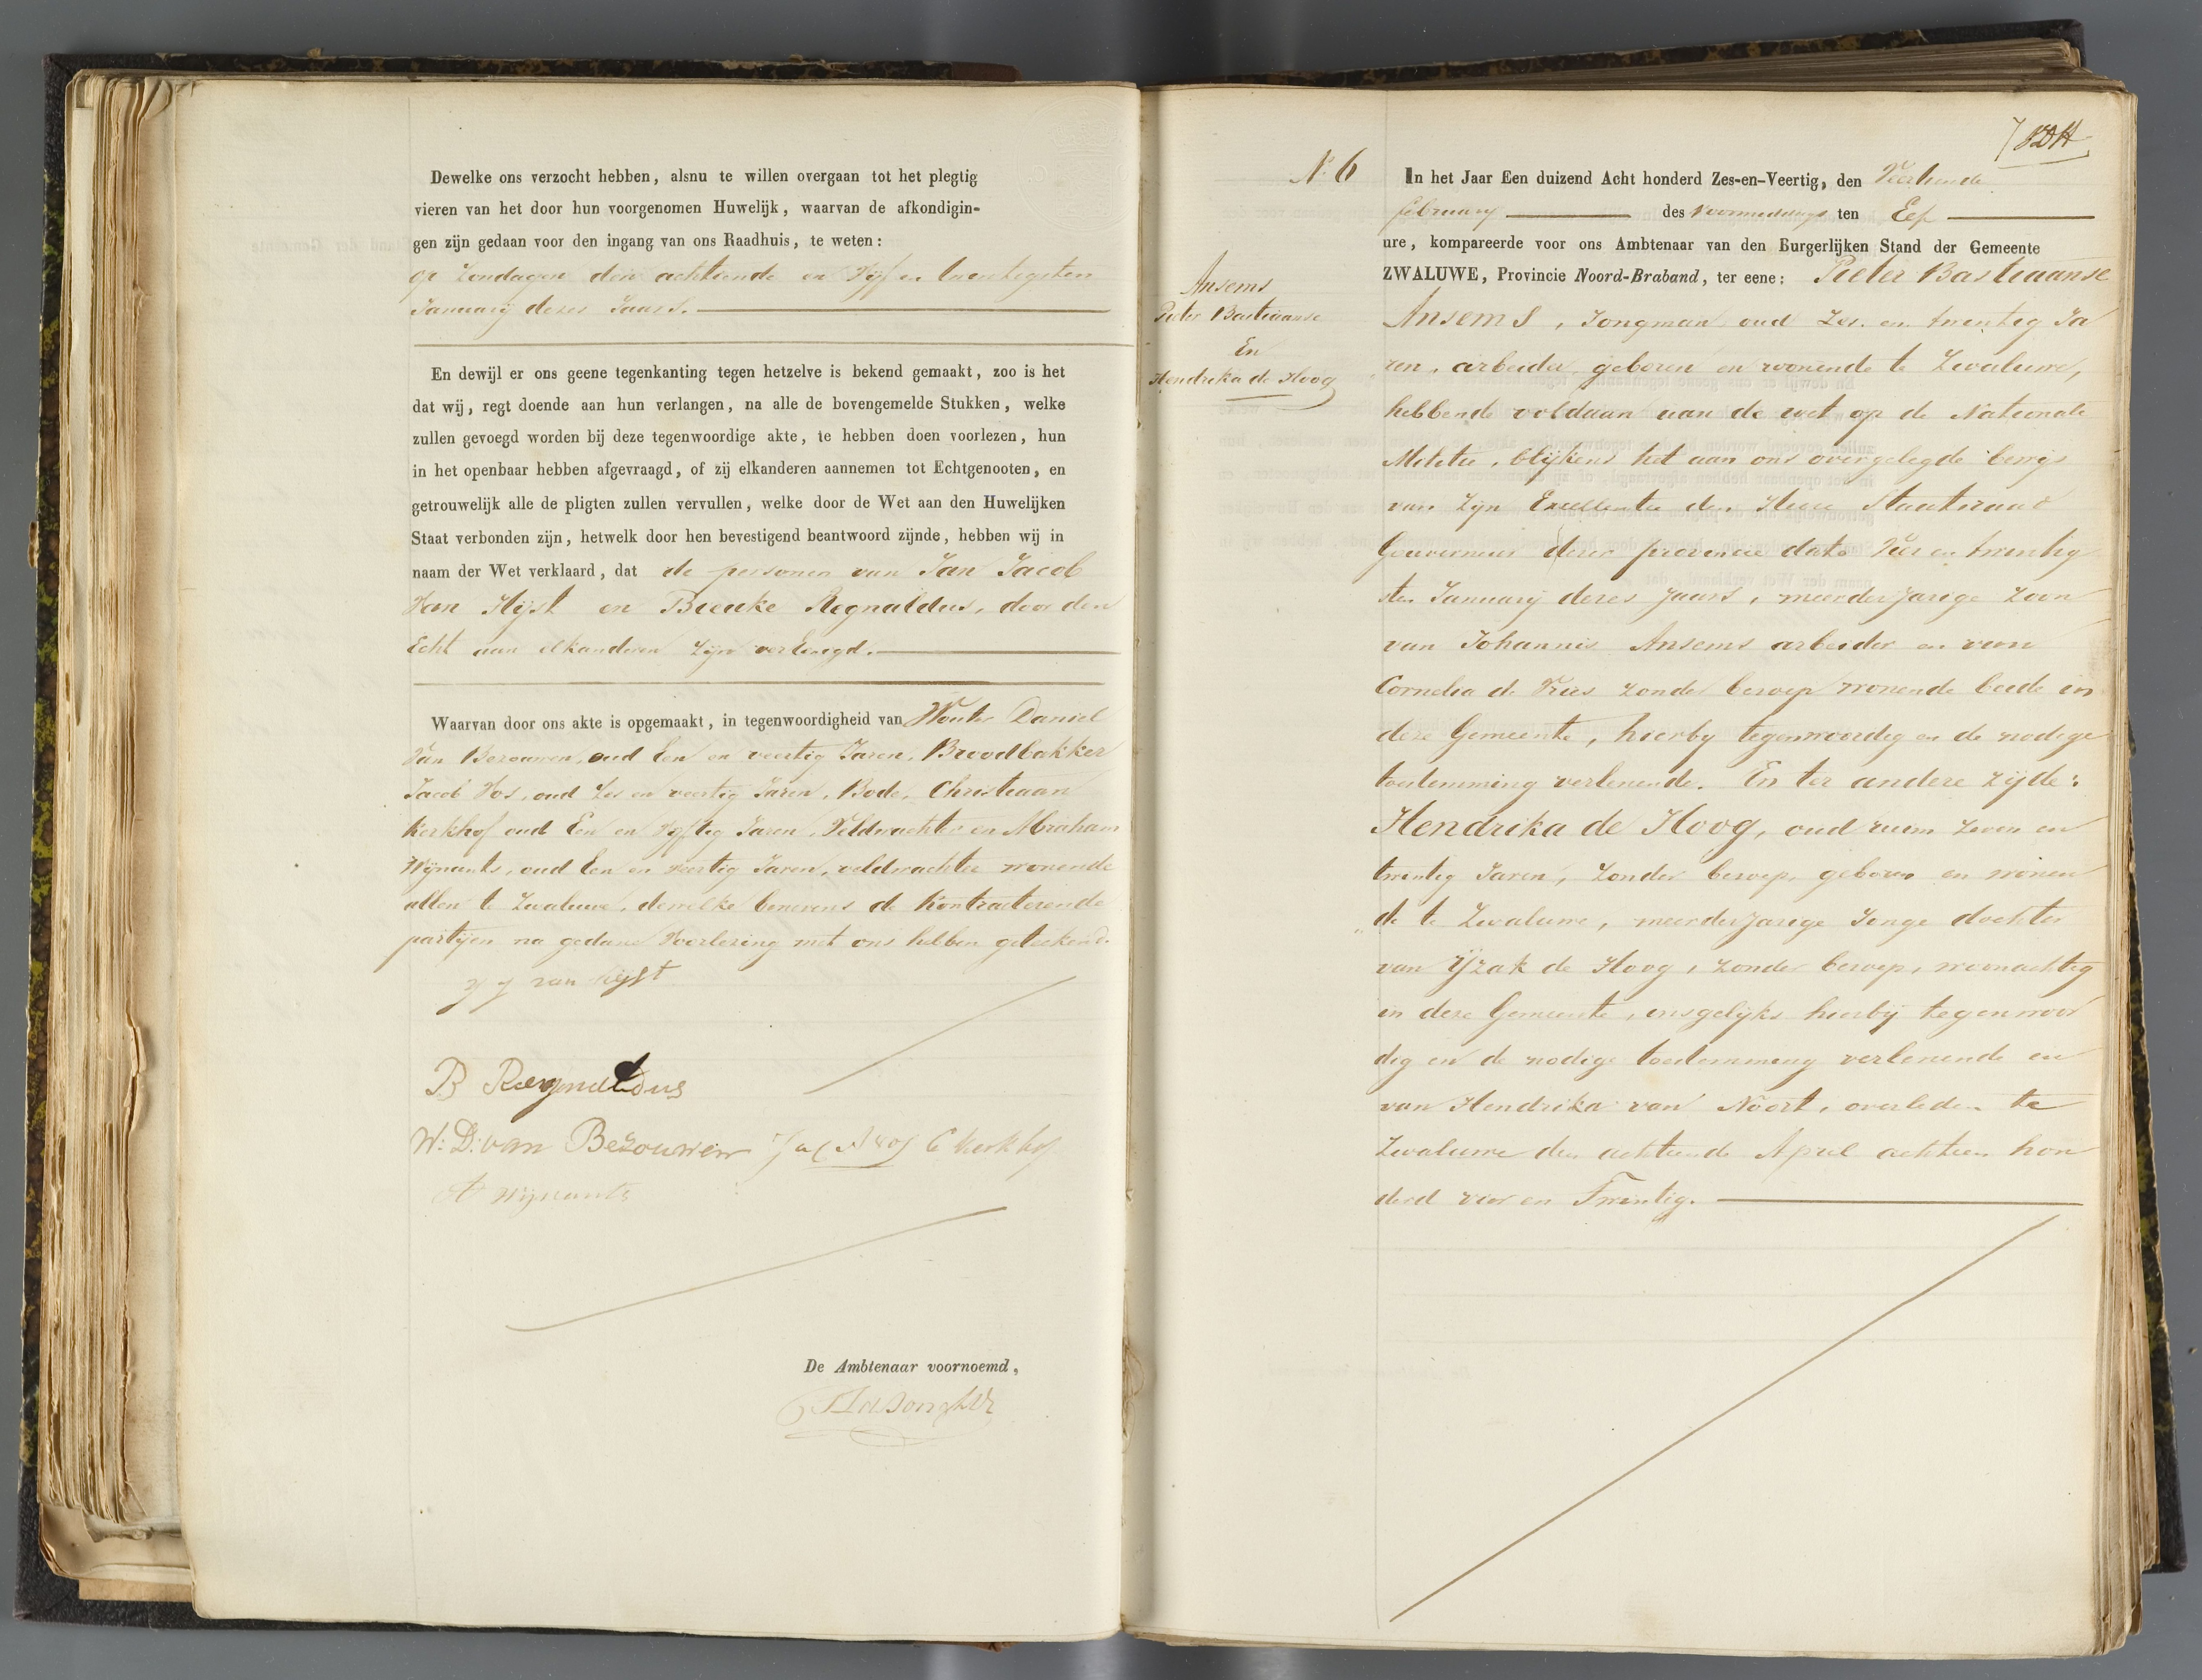 Dewelke ons verzocht hebben, alsnu te willen overgaan tot het plegtig
vieren van het door hun voorgenomen Huwelijk, waarvan de afkondigin-
gen zijn gedaan voor den ingang van ons Raadhuis, te weten:
op Zondagen den achttiende en Vijf en twentigsten
January dezes Jaars.
En dewijl er ons geene tegenkanting tegen hetzelve is bekend gemaakt, zoo is het
dat wij, regt doende aan hun verlangen, na alle de bovengemelde Stukken, welke
zullen gevoegd worden bij deze tegenwoordige akte, te hebben doen voorlezen, hun
in het openbaar hebben afgevraagd, of zij elkanderen aannemen tot Echtgenooten, en
getrouwelijk alle de pligten zullen vervullen, welke door de Wet aan den Huwelijken
Staat verbonden zijn, hetwelk door hen bevestigend beantwoord zijnde, hebben wij in
naam der Wet verklaard, dat de personen van Jan Jacob
Van Hijst en Bieuke Regnaldus, door den
Echt aan elkanderen zijn verbengd.
Waarvan door ons akte is opgemaakt, in tegenwoordigheid van Wouter Daniel
Van Bezouwen, oud Een en veertig Jaren, Broodbakker
Jacob Vos, oud Zes en veertig Jaren, Bode, Christiaan
Kerkhof oud Een en Vyftig Jaren, Veldwachter en Abraham
Wijnants, oud Een en veertig Jaren, veldwachter wonende
allen te Zwaluwe, dewelke benevens de Kontracterende
partijen na gedane Voorlezing met ons hebben geteekend.
J J van Hijst
B Regnaldus
W: D: van Bezouwen Jacob Vos C Kerkhof
A Wijnants
De Ambtenaar voornoemd,
7
N. 6
Ansems
Pieter Bastiaanse
En
Hendrika de Hoog
In het Jaar Een duizend Acht honderd Zes-en-Veertig, den Veertiende
february des voormiddags ten Elf
ure, kompareerde voor ons Ambtenaar van den Burgerlijken Stand der Gemeente
ZWALUWE, Provincie Noord-Braband, ter eene: Pieter Bastiaanse
Ansems, Jongman, oud Zes en twentig Ja
ren, arbeider, geboren en wonende te Zwaluwe,
hebbende voldaan aan de wet op de Nationale
Militie, blijkens het aan ons overgelegde bewijs
van Zijn Excellentie den Heere Staatsraad
Gouverneur dezer provincie dato Vier en twentig
sten January dezes Jaars, meerderjarige Zoon
van Johannis Ansems arbeider en van
Cornelia de Vries zonder beroep wonende beide in
deze Gemeente, hierby tegenwoordig en de nodige
toestemming verlenende. En ter andere zijde:
Hendrika de Hoog, oud ruim Zeven en
twentig Jaren, Zonder beroep, geboren en wonen
de te Zwaluwe, meerderjarige Jonge dochter
van Yzak de Hoog, zonder beroep, woonachtig
in deze Gemeente, insgelijks hierbij tegenwoor
dig en de nodige toestemming verlenende en
van Hendrika van Noort, overleden te
Zwaluwe den achttiende April achttien hon
derd vier en Twentig.